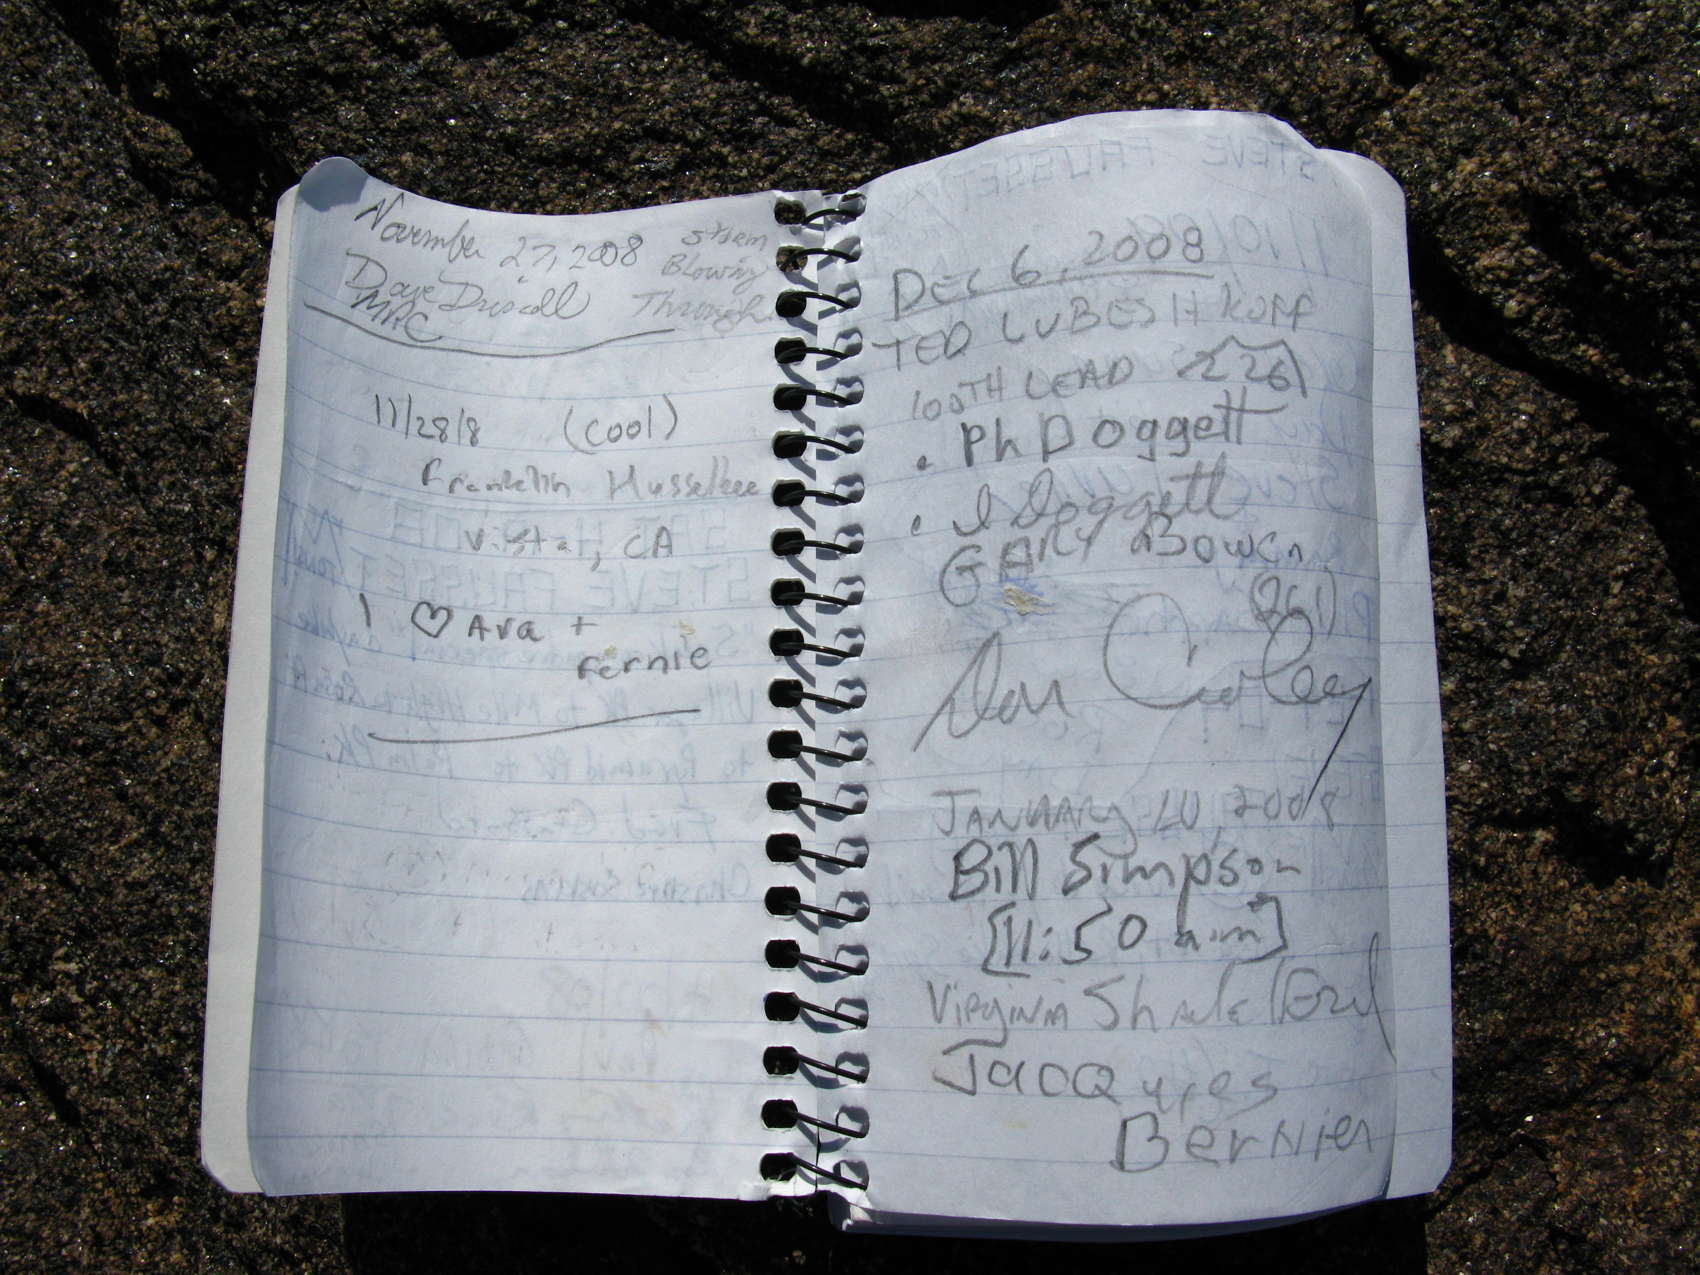 November 27, 2008
Dave Driscoll
MRC
Blowing
Through
11/28/8 (cool)
Franklin
Vista, CA
I ♡ Ava +
Fernie
DEC 6, 2008
TED LUBESHKOFF
100TH LEAD 226
• Ph Doggett
• I Doggett
GARY Bowen
(261)
Don Curley
JANUARY 10, 2008
Bill Simpson
[11:50 a.m]
VIRGINIA
Jacques
Bernier